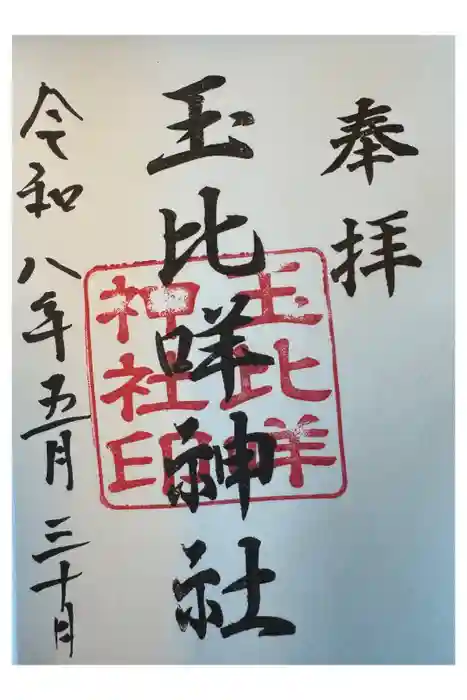 奉拝
玉比咩神社
玉比咩
神社印
令和八年五月三十日